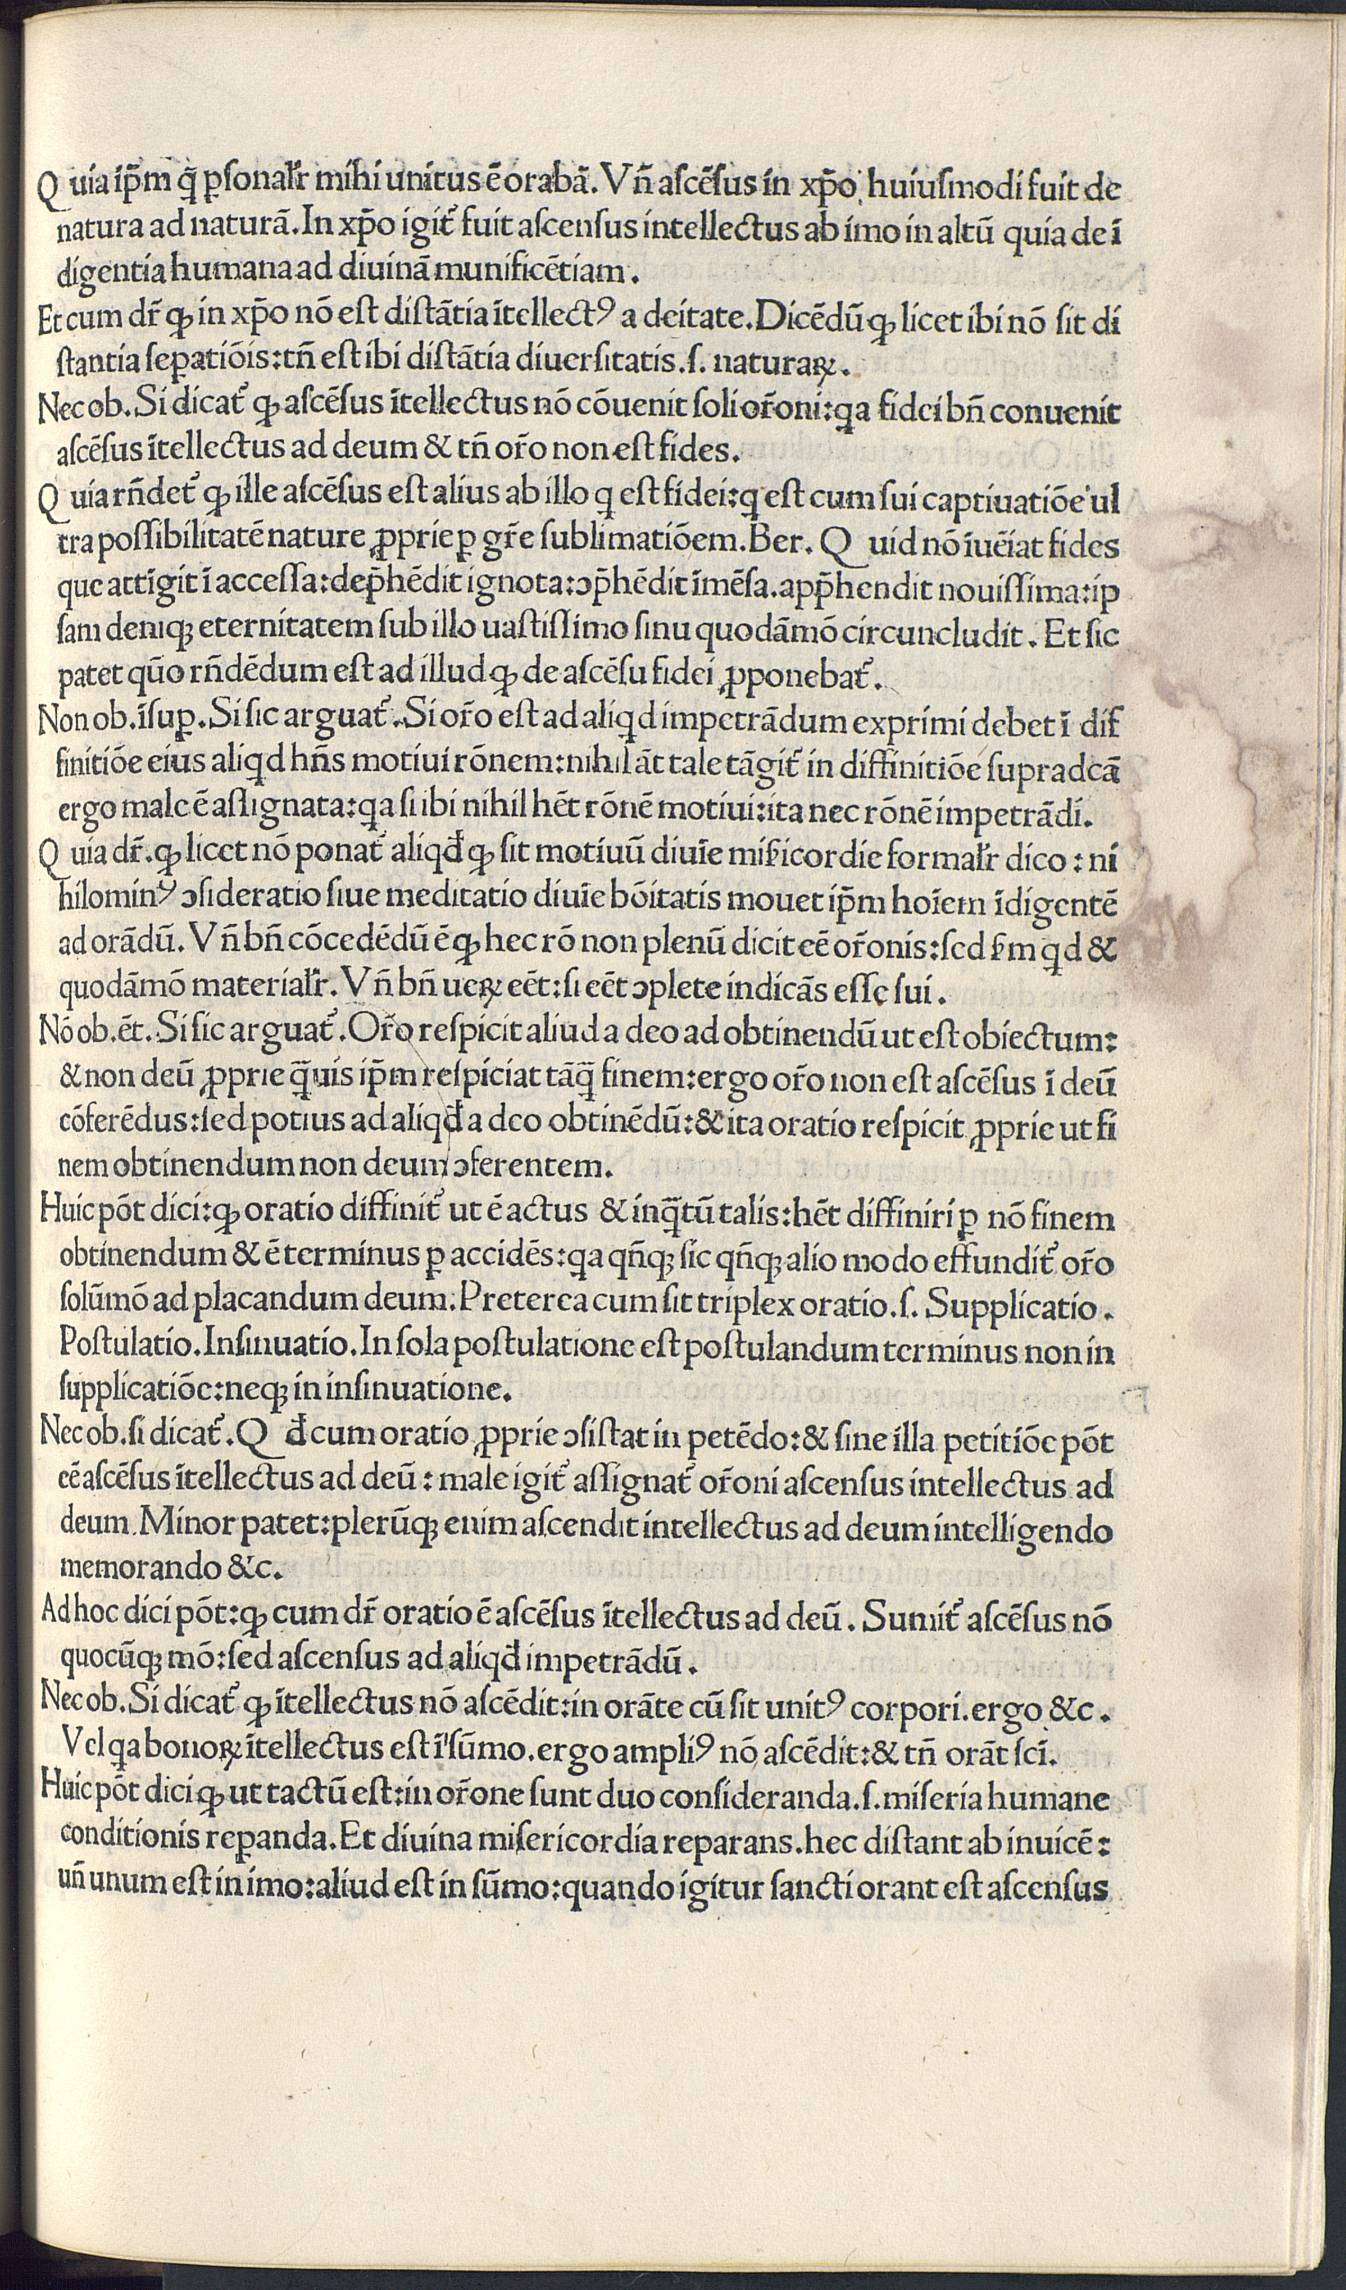 Q uia ip̄m q̄ ꝑſonal'r mihi unitus ē orabā. Vn̄ aſcēſus in xp̄o huiuſmodi fuit de
natura ad naturā. In xp̄o igit᷑ fuit aſcenſus intellectus ab imo in altū quia de ī
digentia humana ad diuinā munificētiam.
Et cum dr̄ ꝙ in xp̄o nō est diſtātia ītellectꝰ a deitate. Dicēdū ꝙ licet ibi nō sit di
ſtantia ſeꝑatiōis: tn̄ eſt ibi diſtātia diuerſitatis. ſ. naturaꝝ.
Nec ob. Si dicat᷑ ꝙ aſcēſus ītellectus nō cōuenit ſoli or̄oni: qa fidei bn̄ conuenit
aſcēſus ītellectus ad deum & tn̄ or̄o non eſt fides.
Q uia rn̄det᷑ ꝙ ille aſcēſus eſt alius ab illo q eſt fidei: q eſt cum ſui captiuatiōe ul
tra poſſibilitatē nature ꝓprie ꝑ gr̄e ſublimatiōem. Ber. Q uid nō īuēiat fides
que attīgit ī acceſſa: dep̄hēdit ignota: ↄp̄hēdit īmēſa. app̄hendit nouiſſima: ip
ſam deniqꝫ eternitatem ſub illo uaſtiſſimo ſinu quodāmō circuncludit. Et ſic
patet qūo rn̄dēdum eſt ad illud ꝙ de aſcēſu fidei ꝓponebat᷑.
Non ob. īſuꝑ. Si ſic arguat᷑. Si or̄o eſt ad aliqd impetrādum exprimi debet ī dif
finitiōe eius aliqd hn̄s motiui rōnem: nihil āt tale tāgit᷑ in diffinitiōe ſupradcā
ergo male ē aſſignata: qa ſi ibi nihil hēt rōnē motiui: ita nec rōnē impetrādi.
Q uia dr̄. ꝙ licet nō ponat᷑ aliqd̄ ꝙ ſit motiuū diuīe miſ'icordie formal'r dico: ni
hilominꝰ ↄſideratio ſiue meditatio diuīe bōitatis mouet ip̄m hoīem īdigentē
ad orādū. Vn̄ bn̄ cōcedēdū ē ꝙ hec rō non plenū dicit eē or̄onis: ſed ſ'm qd &
quodāmō material'r. Vn̄ bn̄ ueꝝ eēt: ſi eēt ↄplete indicās eſſe ſui.
Nō ob. ēt. Si ſic arguat᷑. Or̄o reſpicit aliud a deo ad obtinendū ut eſt obiectum:
& non deū ꝓprie q̄uis ip̄m reſpiciat tāq̄ finem: ergo or̄o non eſt aſcēſus ī deū
cōferēdus: ſed potius ad aliqd̄ a deo obtinēdū: & ita oratio reſpicit ꝓprie ut fi
nem obtinendum non deum ↄferentem.
Huic pōt dici: ꝙ oratio diffinit᷑ ut ē actus & inq̄tū talis: hēt diffiniri ꝑ nō finem
obtinendum & ē terminus ꝑ accidēs: qa qn̄qꝫ ſic qn̄qꝫ alio modo effundit᷑ or̄o
ſolūmō ad placandum deum. Preterea cum ſit triplex oratio. ſ. Supplicatio.
Poſtulatio. Inſinuatio. In ſola poſtulatione eſt poſtulandum terminus non in
ſupplicatiōe: neqꝫ in inſinuatione.
Nec ob. ſi dicat᷑. Q d̄ cum oratio ꝓprie ↄſiſtat in petēdo: & ſine illa petitiōe pōt
eē aſcēſus ītellectus ad deū: male igit᷑ aſſignat᷑ or̄oni aſcenſus intellectus ad
deum. Minor patet: plerūqꝫ enim aſcendit intellectus ad deum intelligendo
memorando &c.
Ad hoc dici pōt: ꝙ cum dr̄ oratio ē aſcēſus ītellectus ad deū. Sumit᷑ aſcēſus nō
quocūqꝫ mō: ſed aſcensus ad aliqd̄ impetrādū.
Nec ob. Si dicat᷑ ꝙ ītellectus nō aſcēdit: in orāte cū ſit unitꝰ corpori. ergo &c.
Vel qa bonoꝝ ītellectus eſt ī ſūmo. ergo ampliꝰ nō aſcēdit: & tn̄ orāt ſcī.
Huic pōt dici ꝙ ut tactū eſt: in or̄one ſunt duo conſideranda. ſ. miſeria humane
conditionis reꝑanda. Et diuina miſericordia reparans. hec diſtant ab inuicē:
un̄ unum eſt in imo: aliud eſt in ſūmo: quando igitur ſancti orant eſt aſcenſus